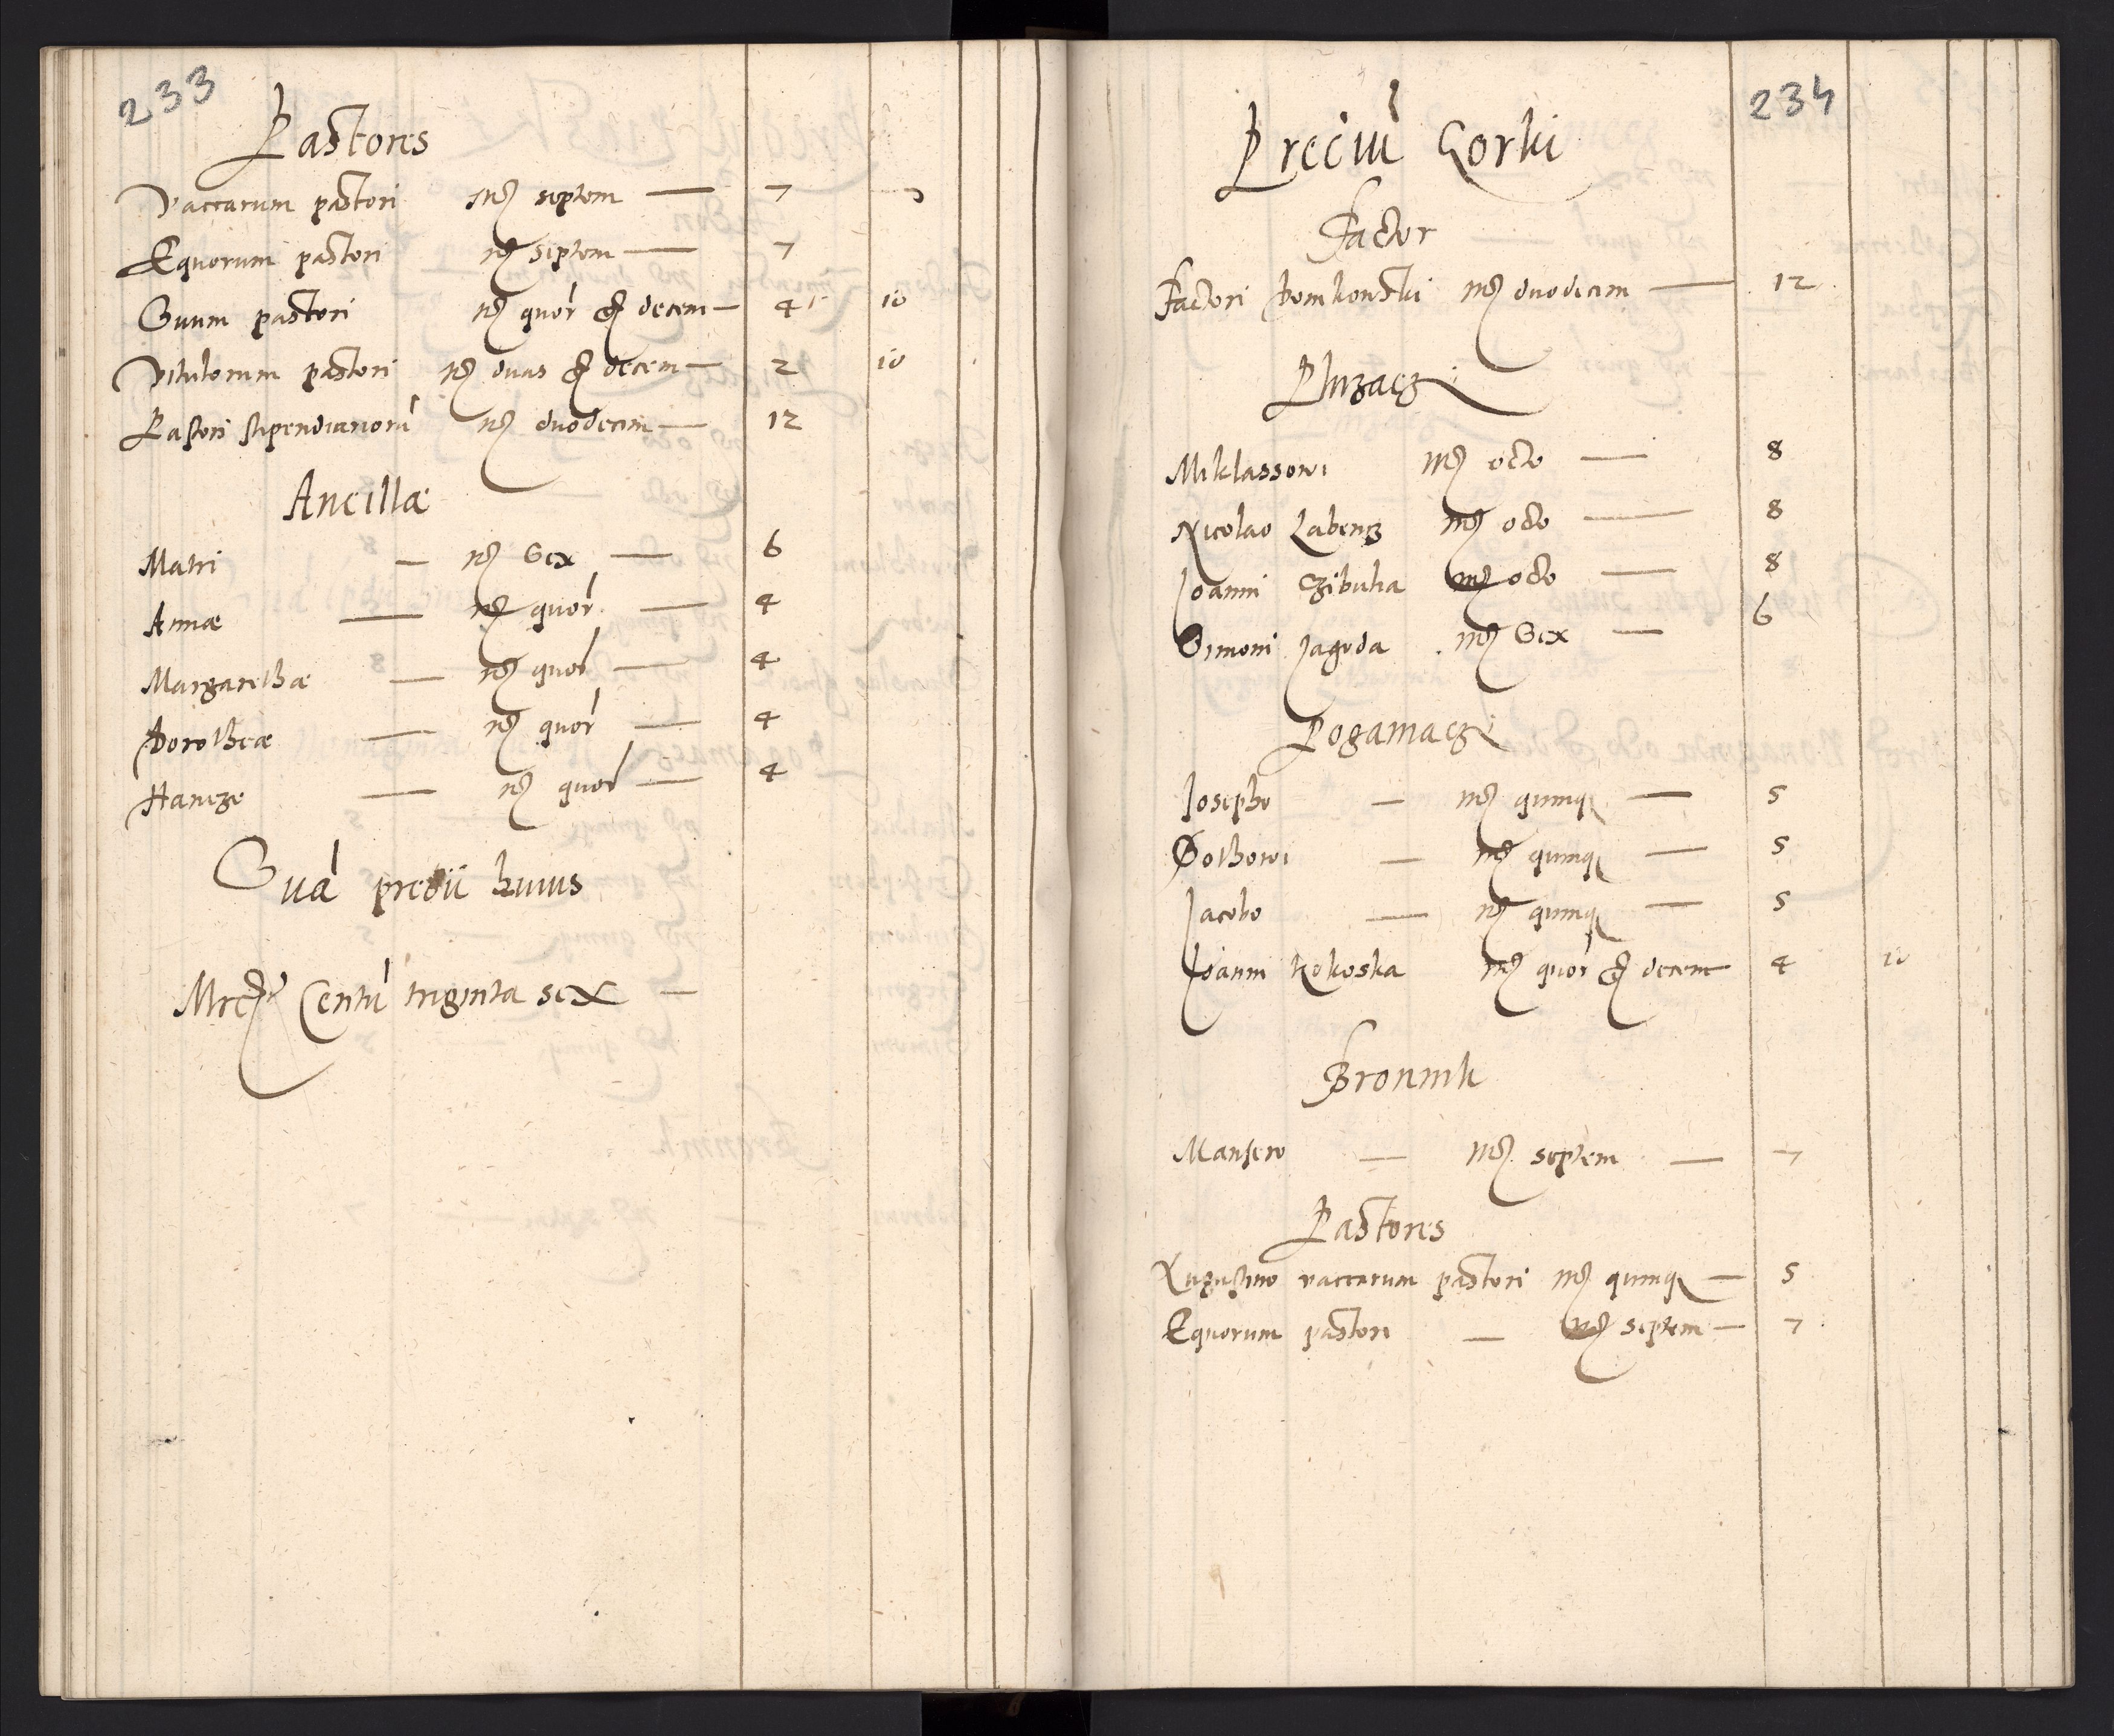 233
Pastores
Vaccarum pastori mrc septem — 7
Equorum pastori mrc septem — 7
Ouum pastori mrc quor et decem — 4 10
Vitulorum pastori mrc duas et decem — 2 10
Pastori stipendiarioru mrc duodecim — 12
Ancillæ
Matri — mrc Sex — 6
Annæ — mrc quor — 4
Margarethæ — mrc quor — 4
Dorotheæ — mrc quor — 4
Hancze — mrc quor — 4
Sua predii huius
Mrc Centu triginta sex —
234
Preciu Gorki
Factor
Factori Domkowski mrc duodecim — 12
Pluzacz
Miklassowi mrc octo — 8
Nicolao Labencz mrc octo — 8
Joanni Czibulia mrc octo — 8
Simoni Jagoda mrc Sex — 6
Pogamacz
Josepho — mrc quinq — 5
Bothowi — mrc quinq — 5
Jacobo — mrc quinq — 5
Joanni Kokoska mrc quor et decem 4 10
Bronnik
Mansero — mrc septem — 7
Pastores
Augustino vaccarum pastori mrc quinq — 5
Equorum pastori — mrc septem — 7